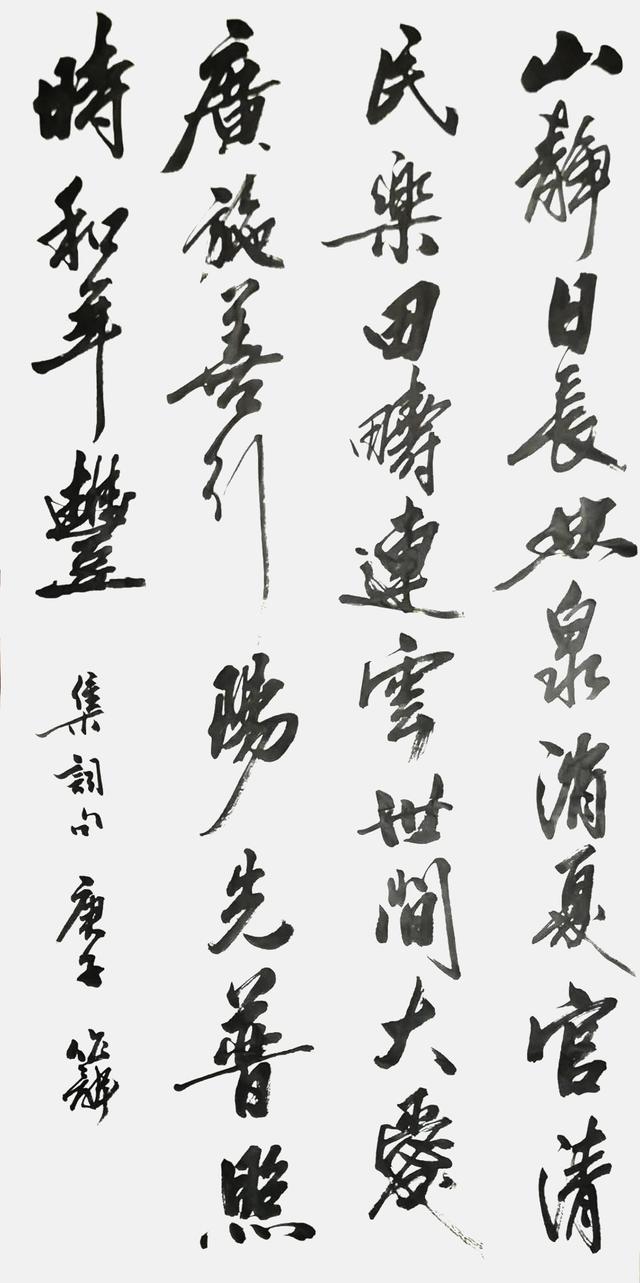 山靜日長林泉消夏官清
民樂田疇連雲世間大愛
廣施善引陽先普照
時和年豐
集詞句 庚子